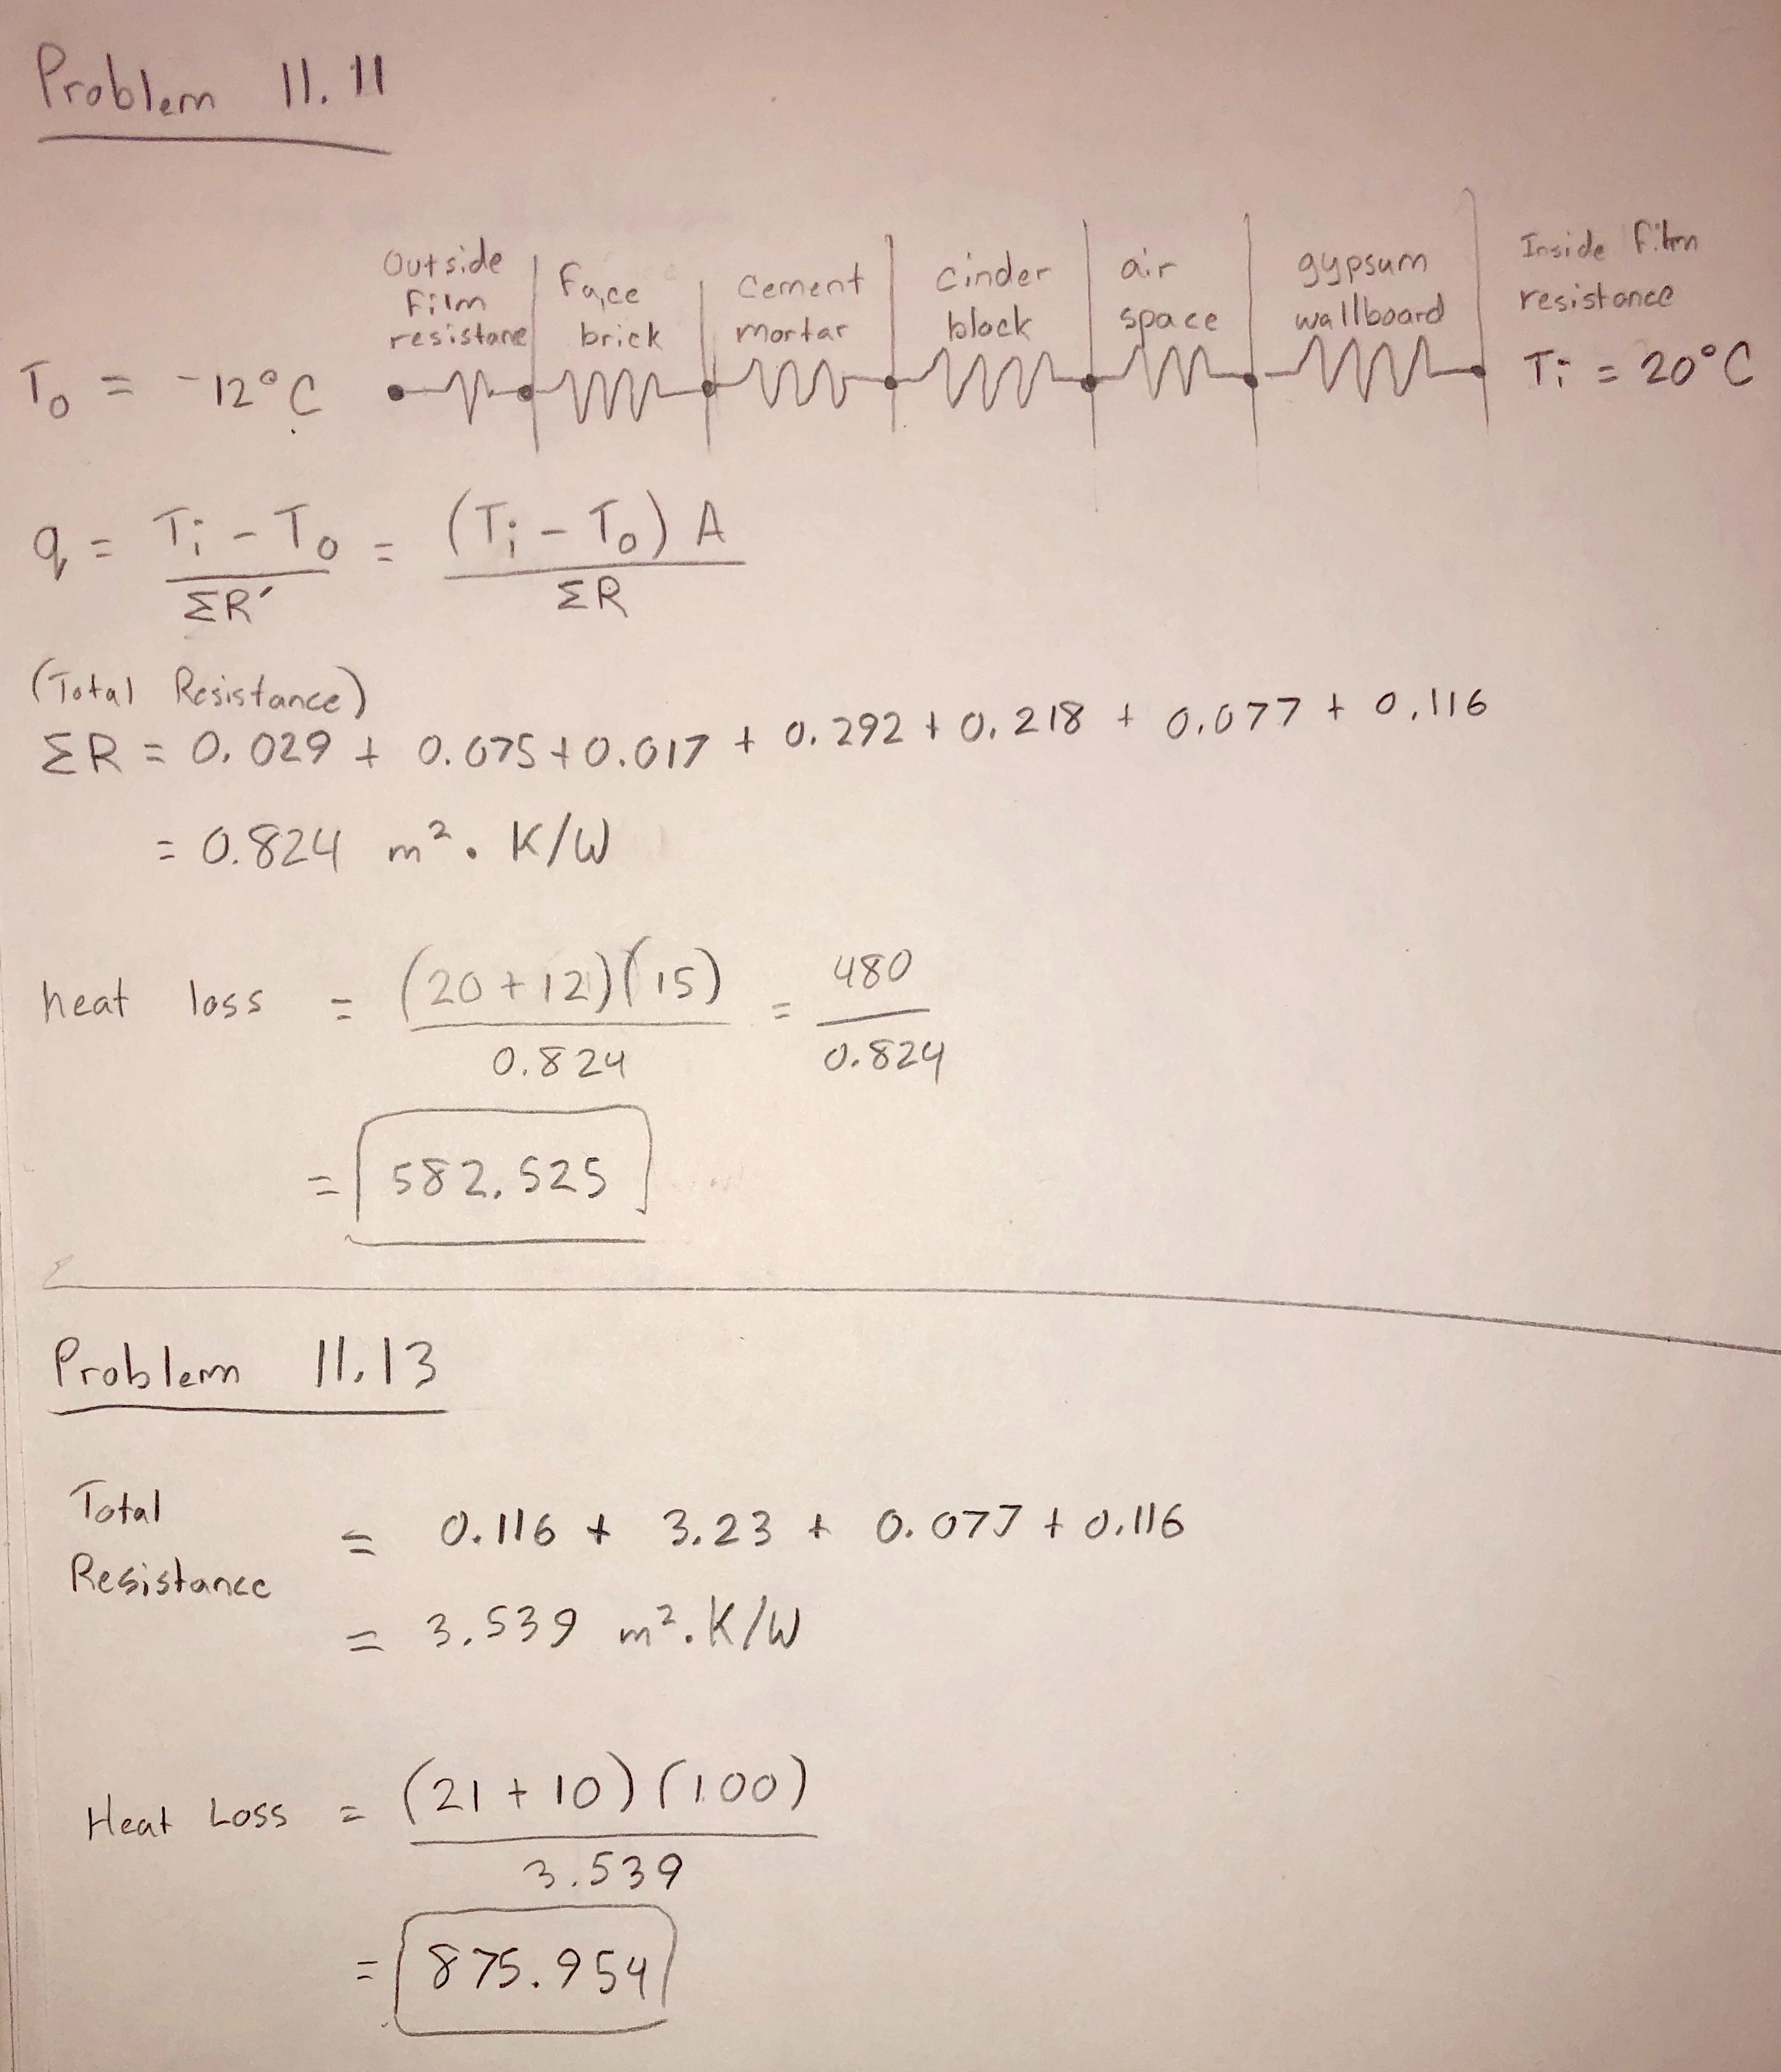 Problem 11.11
Outside film resistane
Face brick
Cement mortar
cinder block
air space
gypsum wallboard
Inside film resistance
T₀ = -12°C
Tᵢ = 20°C
q = (Tᵢ - T₀) / ΣR' = (Tᵢ - T₀) A / ΣR
(Total Resistance)
ΣR = 0.029 + 0.075 + 0.017 + 0.292 + 0.218 + 0.077 + 0.116
= 0.824 m² · K/W
heat loss = (20 + 12)(15) / 0.824 = 480 / 0.824
= 582.525
Problem 11.13
Total Resistance = 0.116 + 3.23 + 0.077 + 0.116
= 3.539 m² · K/W
Heat Loss = (21 + 10)(100) / 3.539
= 875.954